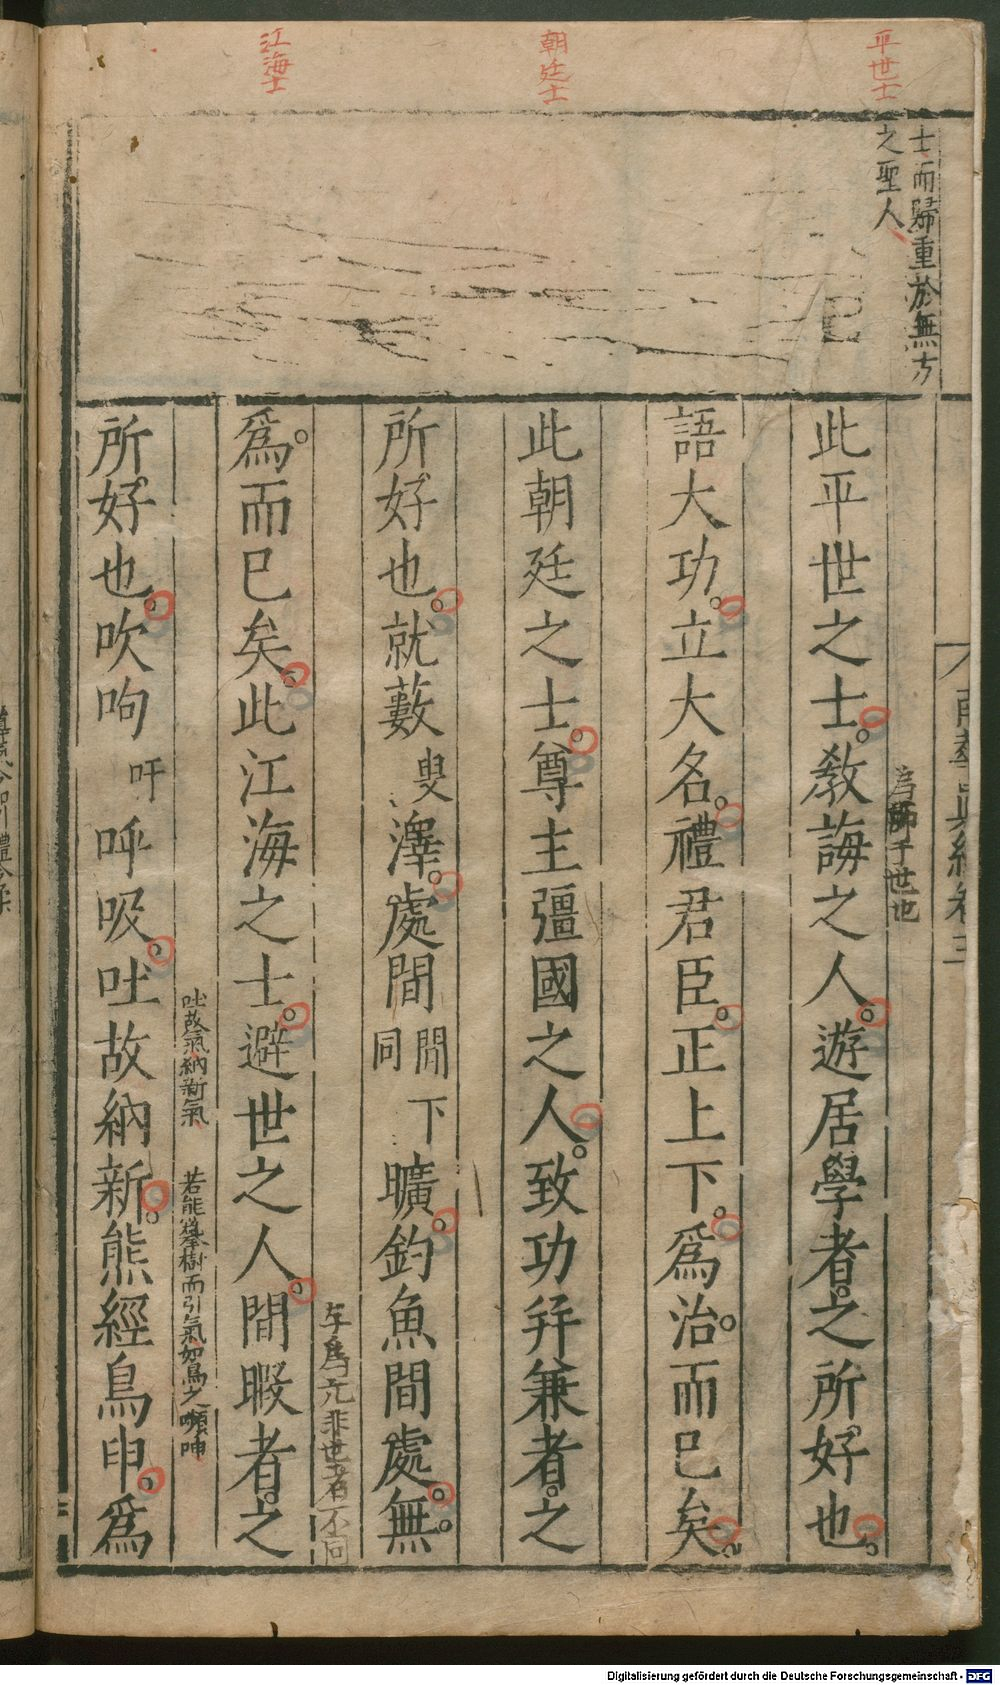 平世士
朝廷士
江海士
士而歸重於無方
之聖人
南華真經卷三
此平世之士教誨之人遊居學者之所好也
語大功立大名禮君臣正上下爲治而已矣
此朝廷之士尊主彊國之人致功并兼者之
所好也就藪叟澤處間閒同下曠釣魚間處無
爲而已矣此江海之士避世之人間暇者之
所好也吹呴吁呼吸吐故納新熊經鳥申爲
師于世也
非世者不同
吐故氣納新氣
若能攀樹而引氣如鳥之嚬呻
Digitalisierung gefördert durch die Deutsche Forschungsgemeinschaft - DFG